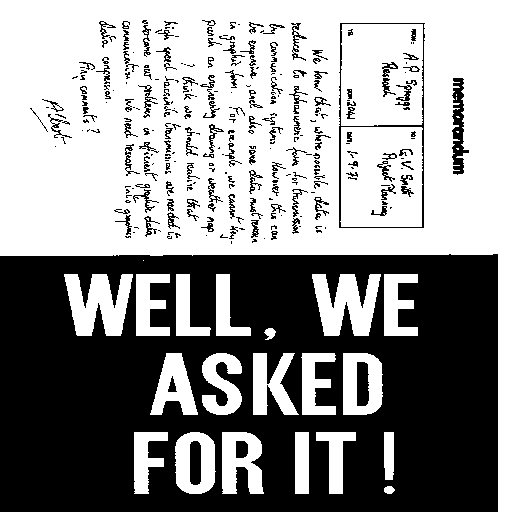 memorandum
FROM: A.P. Spriggs
Research
TO: G.V. Smith
Project Planning
TEL DATE 2041
DATE: 1-9-71
We know that, where possible, data is
reduced to alphanumeric form for transmission
by communication systems. However, this can
be expensive, and also some data must remain
in graphic form. For example, we cannot key-
punch an engineering drawing or weather map.
I think we should realize that
high speed facsimile transmissions are needed to
overcome our problems in efficient graphic data
communication. We need research into graphics
data compression.
Any comments?
Albert
WELL, WE
ASKED
FOR IT!